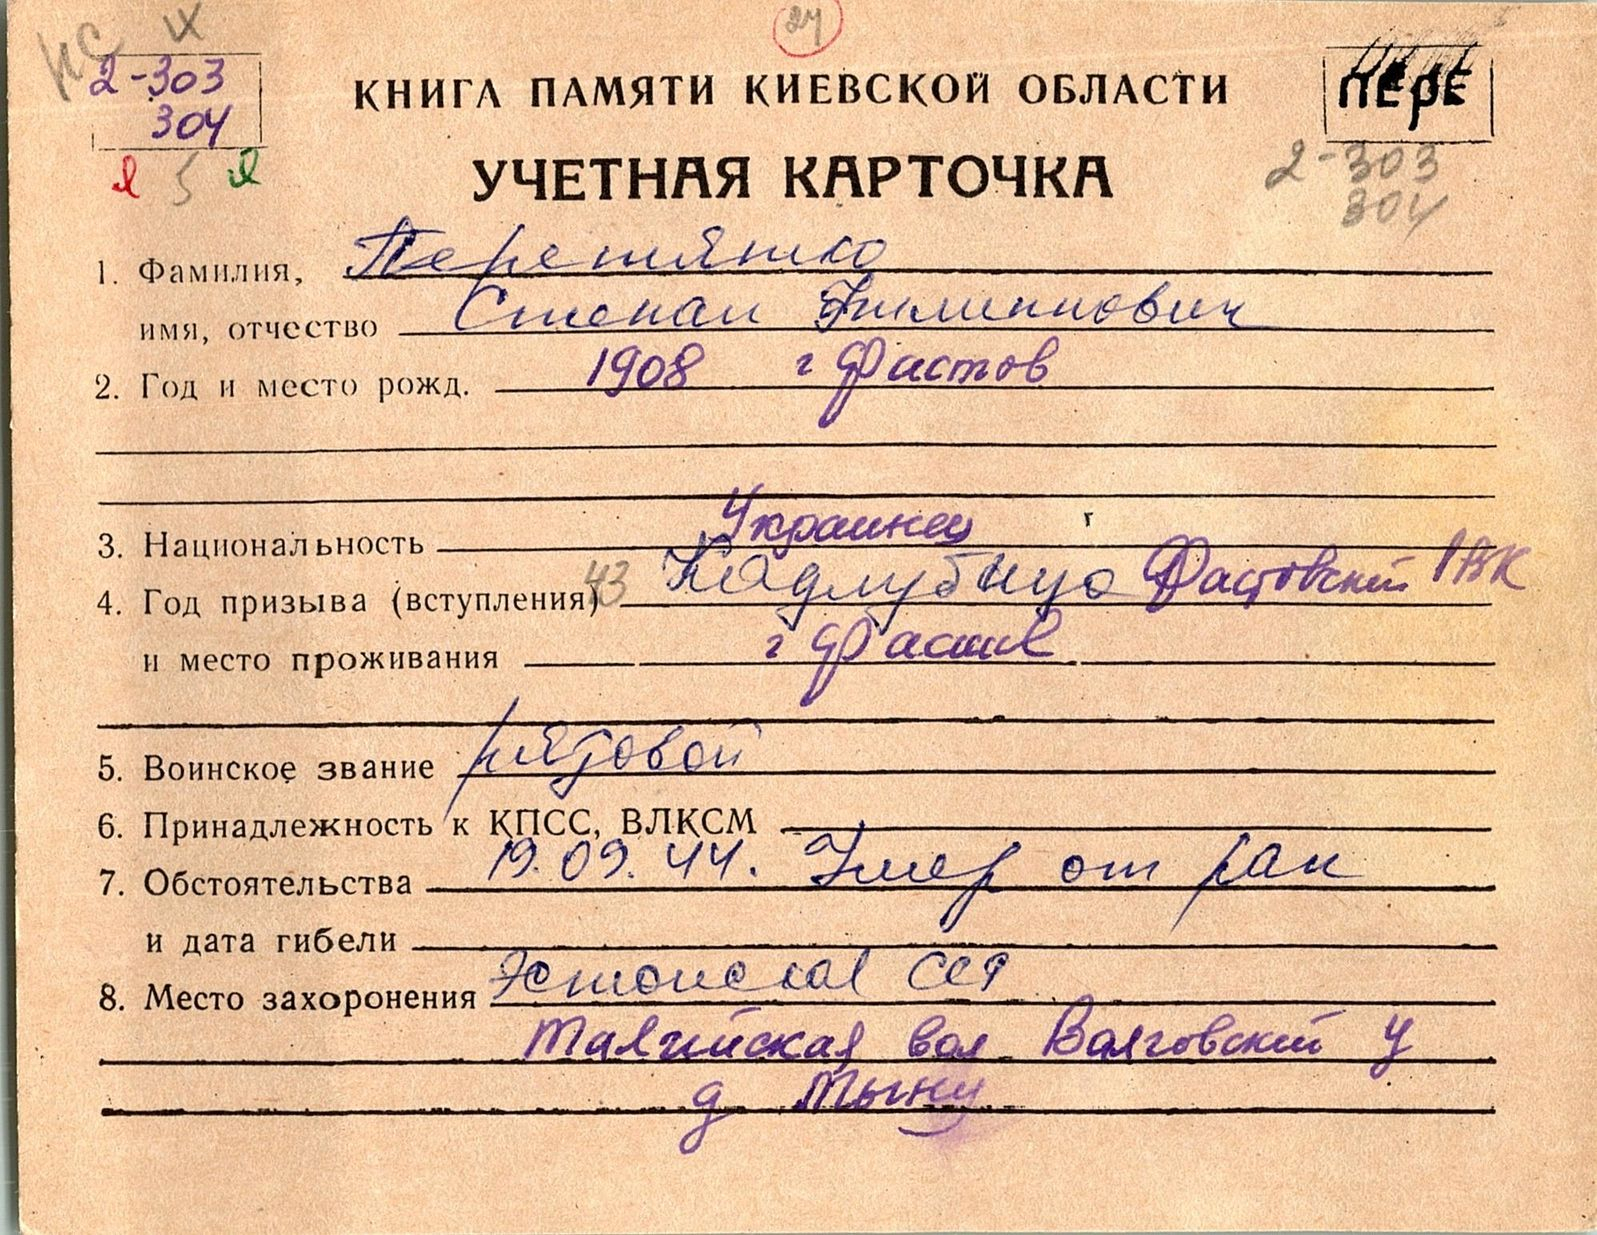 НС IX
27
2-303
304
КНИГА ПАМЯТИ КИЕВСКОЙ ОБЛАСТИ
ПЕРЕ
УЧЕТНАЯ КАРТОЧКА
2-303
304
1. Фамилия, Перетятко
имя, отчество Степан Филиппович
2. Год и место рожд. 1908 г Фастов
3. Национальность Украинец
4. Год призыва (вступления) 43 Кадлубица Фастовский РВК
и место проживания г Фастів
5. Воинское звание рядовой
6. Принадлежность к КПСС, ВЛКСМ
7. Обстоятельства 19.09.44. Умер от ран
и дата гибели
8. Место захоронения Эстонская ССР
вол Валговский у
д Тыну